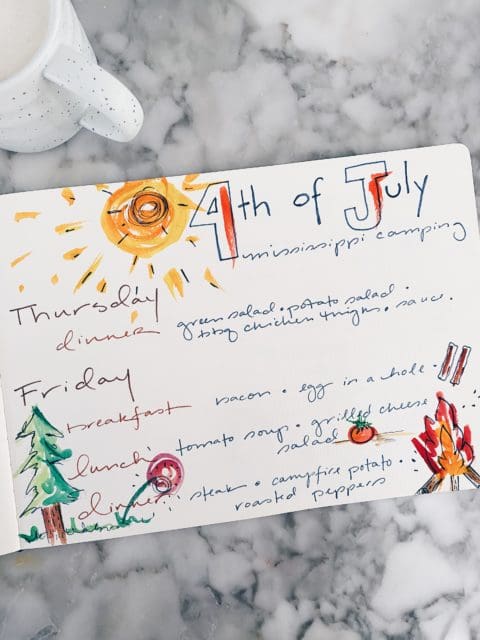 4th of July
mississippi camping
Thursday
dinner
green salad • potato salad •
bbq chicken thighs • sauce •
Friday
breakfast
bacon • egg in a hole •
lunch
tomato soup • grilled cheese
salad
dinner
steak • campfire potato •
roasted peppers